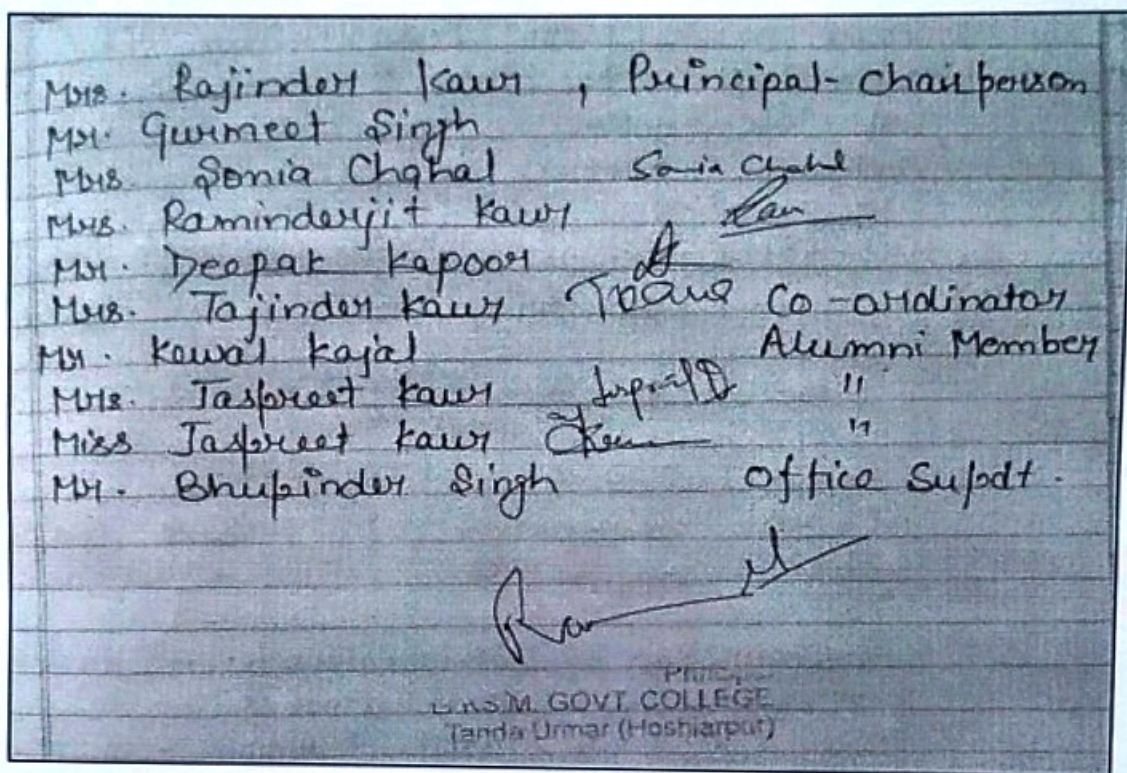 Mrs. Rajinder Kaur , Principal-Chairperson
Mr. Gurmeet Singh
Mrs Sonia Chahal Sonia Chahal
Mrs. Raminderjit Kaur
Mr. Deepak Kapoor
Mrs. Tajinder Kaur Co-ordinator
Mr. Kewal Kajal Alumni Member
Mrs. Jaspreet Kaur "
Miss Jaspreet Kaur "
Mr. Bhupinder Singh Office Supdt.
Principal
GOVT. COLLEGE
Tanda Urmar (Hoshiarpur)